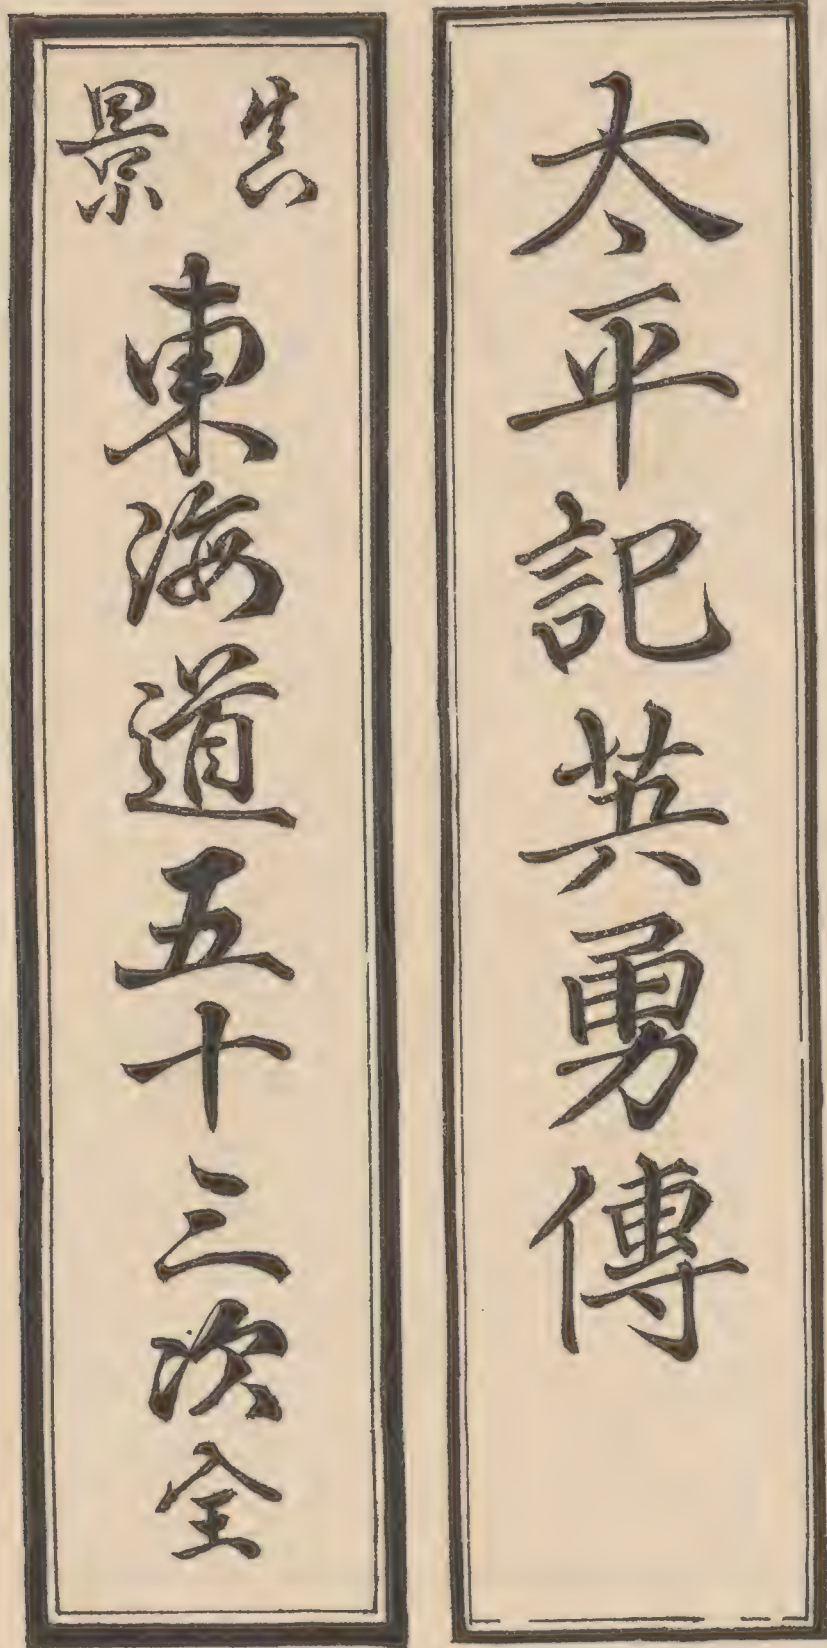 太平記英勇傳
真景
東海道五十三次全